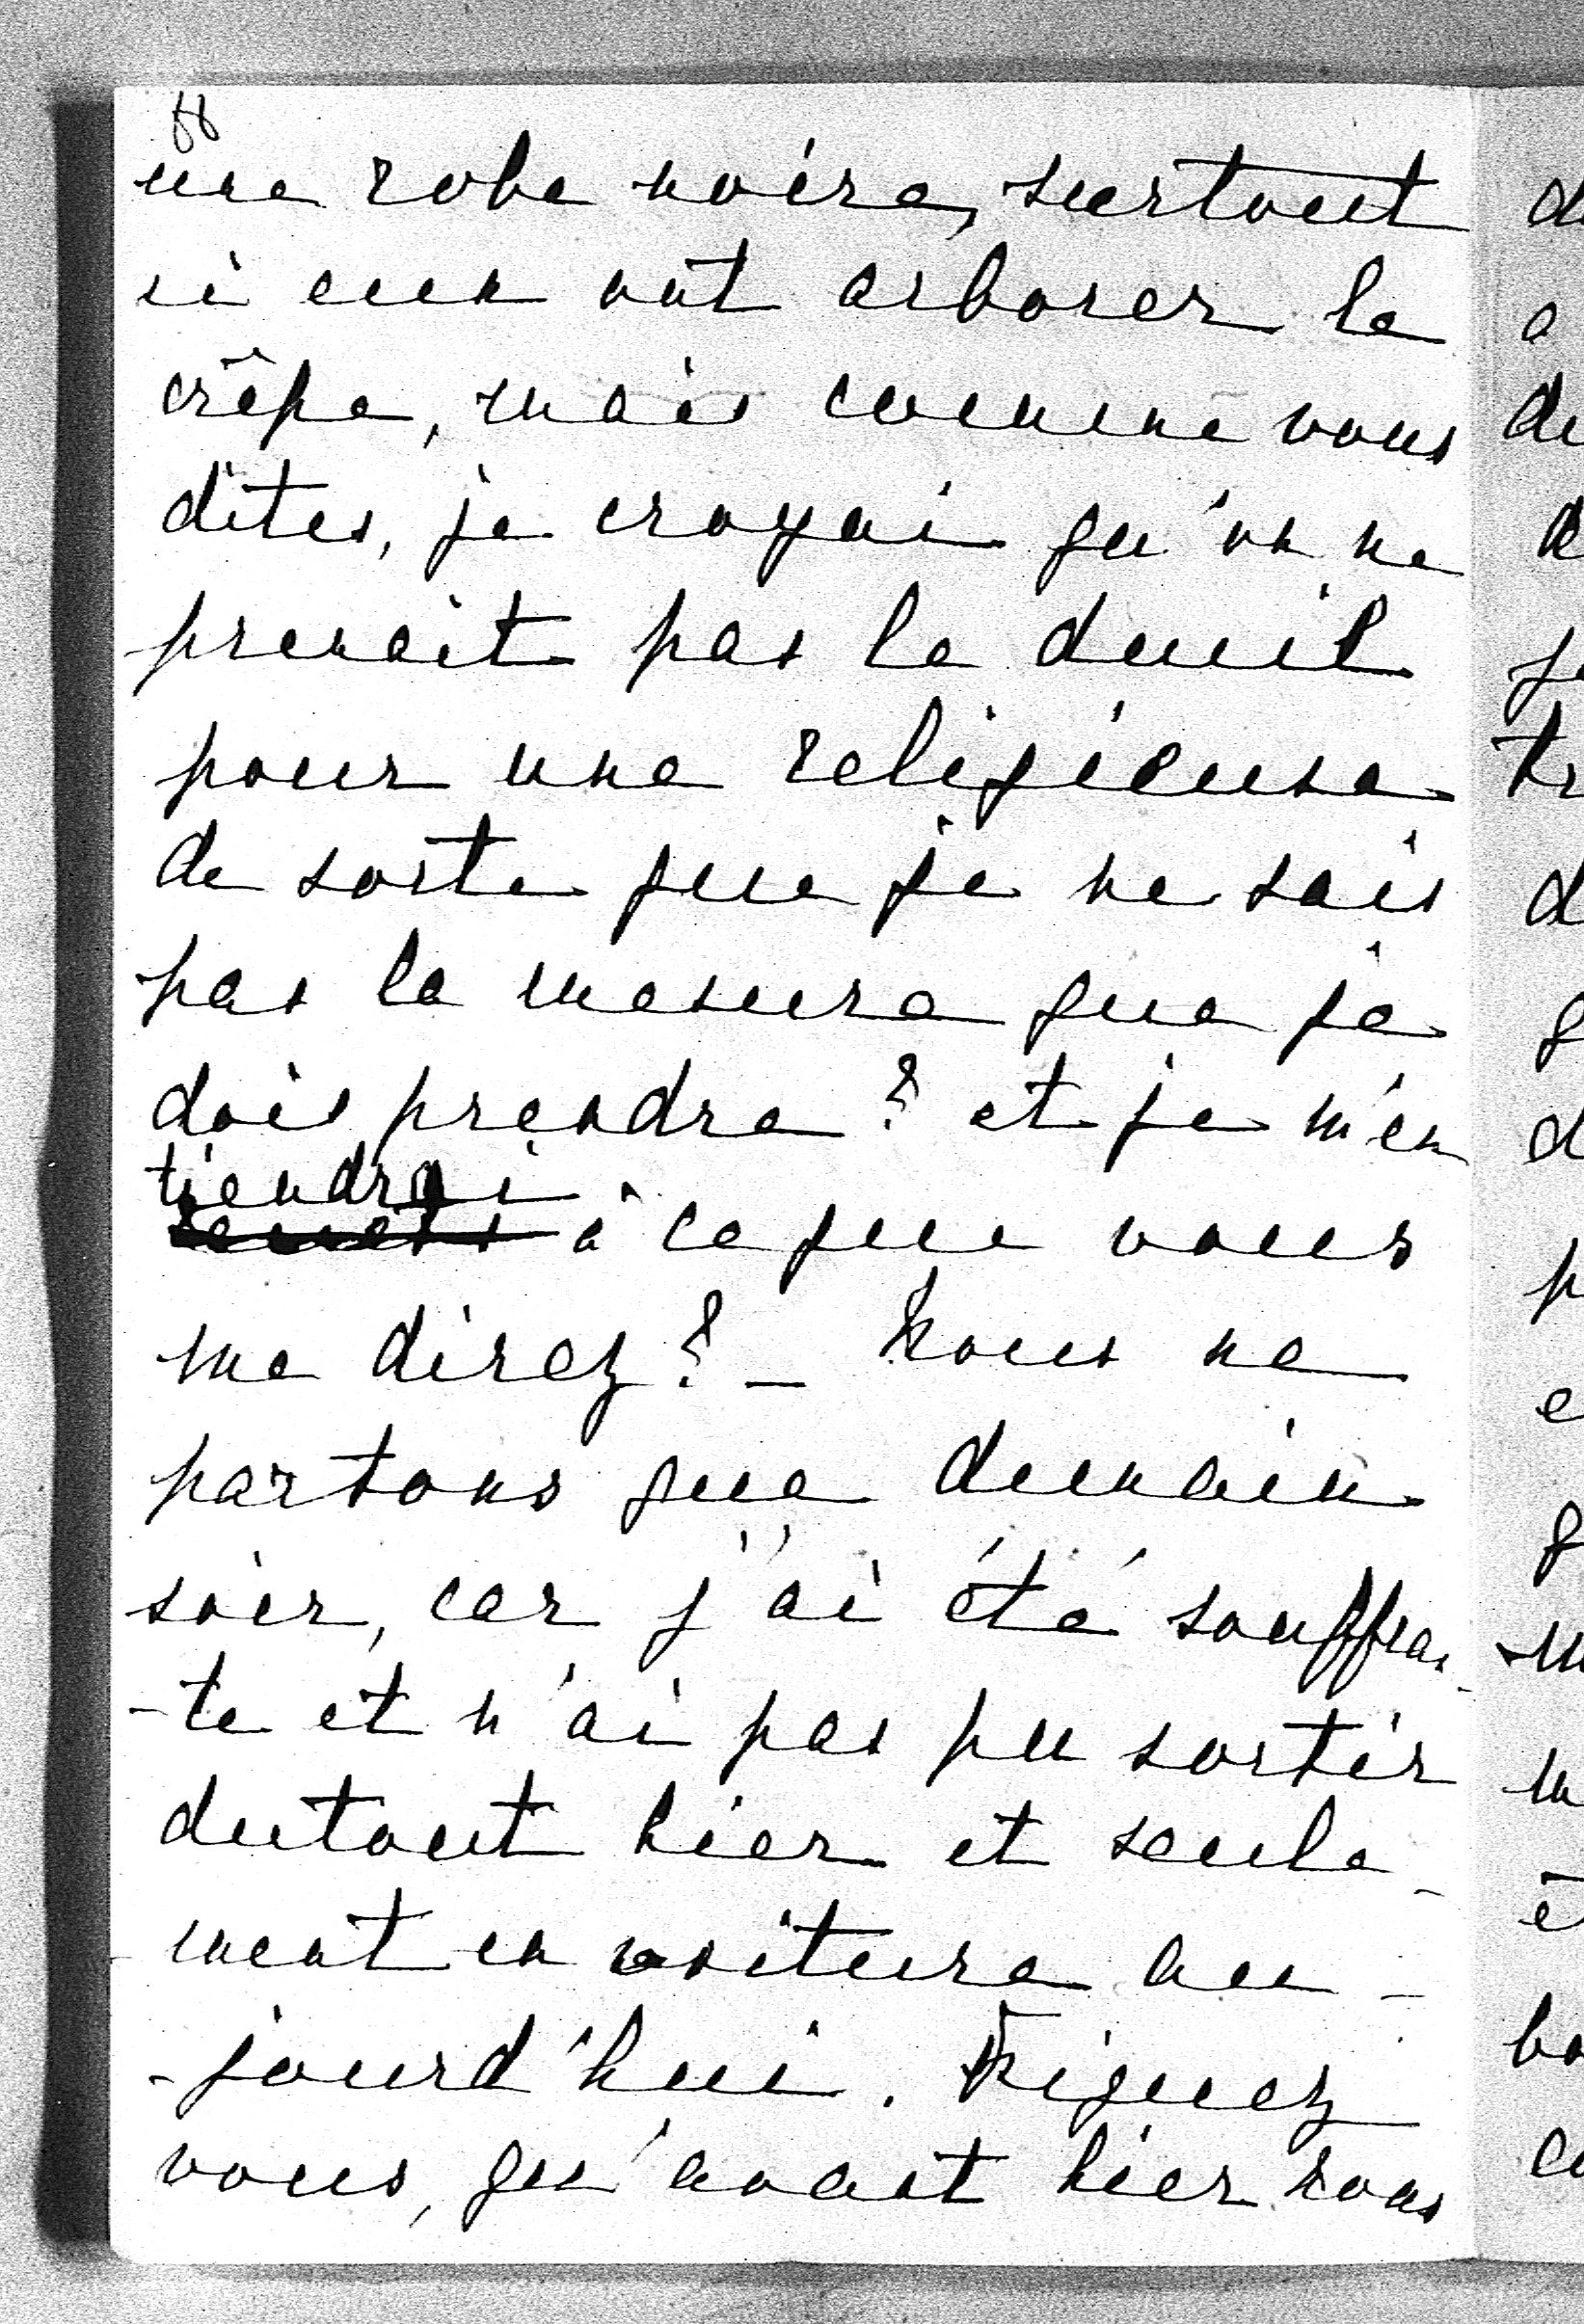 une robe noire, surtout
si eux ont arborer le
crêpe, mais comme vous
dites, je croyai qu'on ne
prenait pas le deuil
pour une religieuse
de sorte que je ne sais
pas la mesure que je
dois prendre? et je m'en
tiendrai
à ce que vous
me direz? _ Nous ne
partons que demain
soir, car j'ai été souffran-
-te et n'ai pas pu sortir
dutout hier et seule-
-ment en voiture au-
-jourd'hui. Figurez
vous, qu'avant hier nous